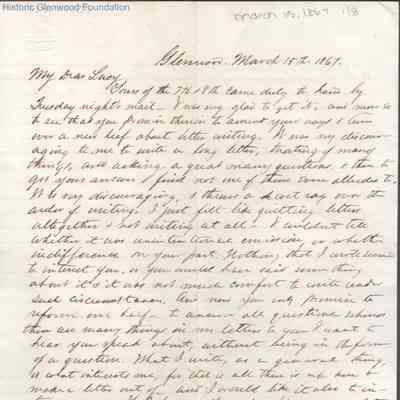 Historic Glenwood Foundation
March 15, 1867 1/8
Glennson, March 15th 1867.
My Dear Lucy
Yours of the 7th & 8th came duly to hand by
Tuesday night's mail — I was very glad to get it, and more so
to see that you promise therein to amend your ways & turn
over a new leaf about letter writing. It was very discour-
aging to me to write a long letter, treating of many
things, and asking a great many questions & then to
get your answer & find not one of them even alluded to.
It is very discouraging, & throws a wet over the
ardor of writing. I just felt like quitting letters
altogether & not writing at all — I couldn't tell
whether it was unintentional omission, or whether
indifference on your part. Nothing that I wrote seemed
to interest you, or you would have said something
about it & it was not much comfort to write under
such circumstances. And now you only promise to
reform one half — to answer all questions whereas
there are many things in my letters to you I want to
hear you speak about, without being in the form
of a question. What I write, as a general thing,
is what interests me, for that is all there is up here to
make a letter out of, and I would like it also to in-